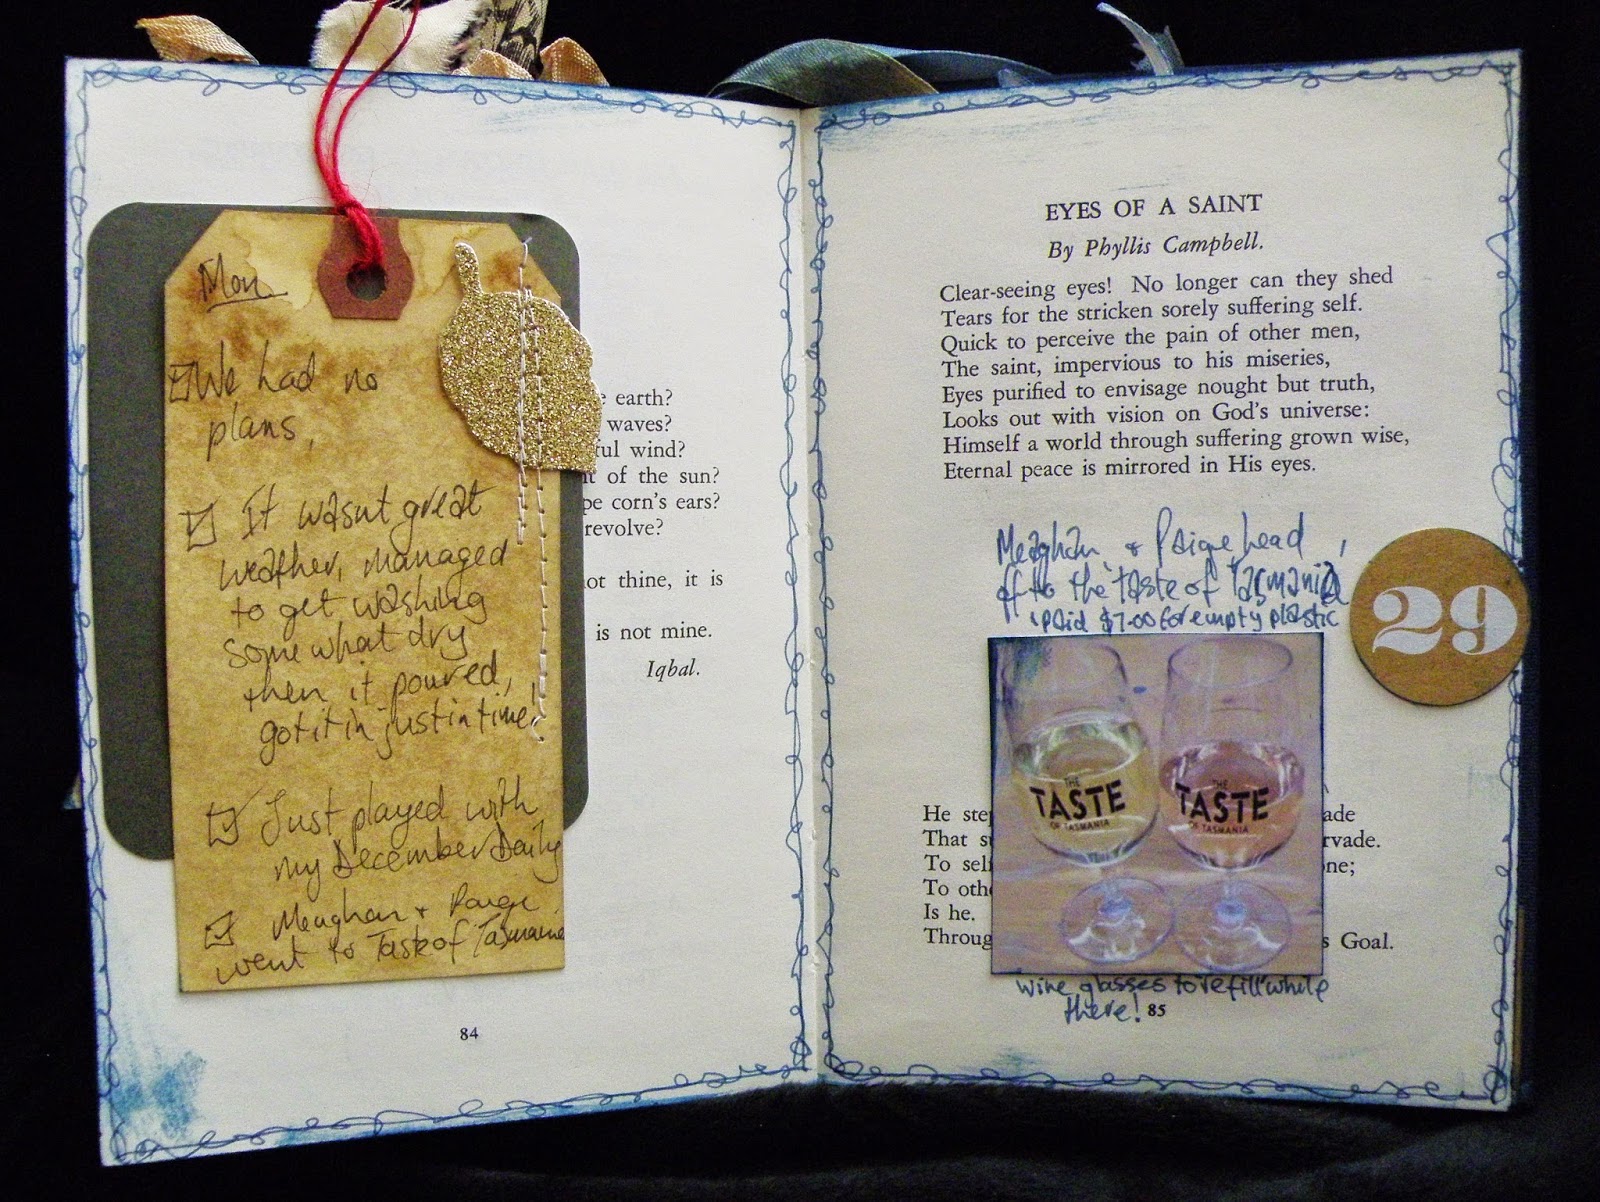 Mon
We had no
plans,
It wasnt great
weather, managed
to get washing
somewhat dry
then it poured,
got it in just in time!
Just played with
my December Daily
Meaghan + Paige
went to Taste of Tasmania
earth?
waves?
ful wind?
of the sun?
pe corn's ears?
revolve?
not thine, it is
is not mine.
Iqbal.
84
EYES OF A SAINT
By Phyllis Campbell.
Clear-seeing eyes! No longer can they shed
Tears for the stricken sorely suffering self.
Quick to perceive the pain of other men,
The saint, impervious to his miseries,
Eyes purified to envisage nought but truth,
Looks out with vision on God's universe:
Himself a world through suffering grown wise,
Eternal peace is mirrored in His eyes.
Meaghan + Paige head
off to the 'taste of Tasmania
paid $7.00 for empty plastic
29
THE TASTE OF TASMANIA
THE TASTE OF TASMANIA
He step ade
That s rvade.
To self one;
To oth
Is he.
Throug s Goal.
wine glasses to 'refill' while
there!
85